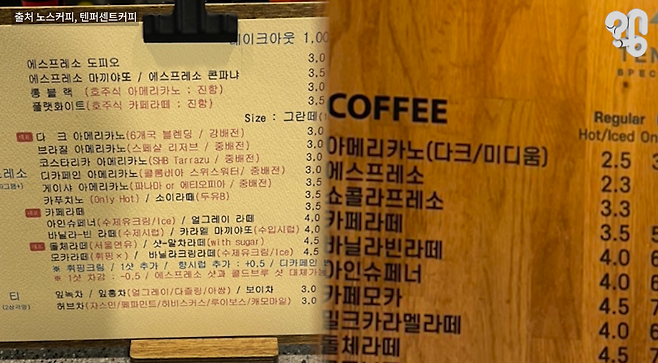 출처 노스커피, 텐퍼센트커피
테이크아웃 1.00
에스프레소 도피오 3.0
에스프레소 마끼야또 / 에스프레소 콘파냐 3.5
롱 블랙 (호주식 아메리카노 : 진함) 3.0
플랫화이트(호주식 카페라떼 : 진함) 3.5
Size : 그란떼
다 크 아메리카노(6개국 블렌딩 / 강배전) 3.0
브라질 아메리카노(스페샬 리저브 / 중배전) 3.0
코스타리카 아메리카노(SHB Tarrazu / 중배전) 3.0
디카페인 아메리카노(콜롬비아 스위스워터 / 중배전) 3.5
게이샤 아메리카노(파나마 or 에티오피아 / 중배전)
카푸치노 (Only Hot) / 소이라떼(두유B) 3.5
카페라떼
아인슈페너(수제유크림/Ice) / 얼그레이 라떼
바닐라-빈 라떼(수제시럽) / 카라멜 마끼야또(수입시럽) 4.0
돌체라떼(서울연유) / 샷-말차라떼(with sugar) 4.5
모카라떼(휘핑×) / 바닐라크림라떼(수제유크림/Ice) 4.5
※ 휘핑크림 / 1샷 추가 / 향시럽 추가 : +0.5 / 디카페인
※ 1샷 차감 : -0.5 / 에스프레소 샷과 콜드브루 샷 대체가능
티
잎녹차 / 잎홍차(얼그레이/다즐링/아쌈) / 보이차 3.0
허브차(자스민/페퍼민트/히비스커스/루이보스/캐모마일) 3.0
COFFEE
Regular
Hot/Iced
아메리카노(다크/미디움) 2.5
에스프레소 2.3
쇼콜라프레소 3.3
카페라떼 3.5
바닐라빈라떼 4.5
아인슈페너 4.0
카페모카 4.5
밀크카라멜라떼 4.0
돌체라떼 4.5